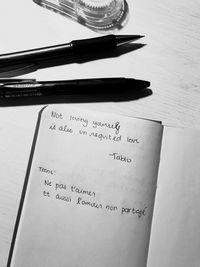 Not loving yourself
is also un requited love.
-Tablo
Trans:
Ne pas t'aimer
Et aussi l'amour non partagé